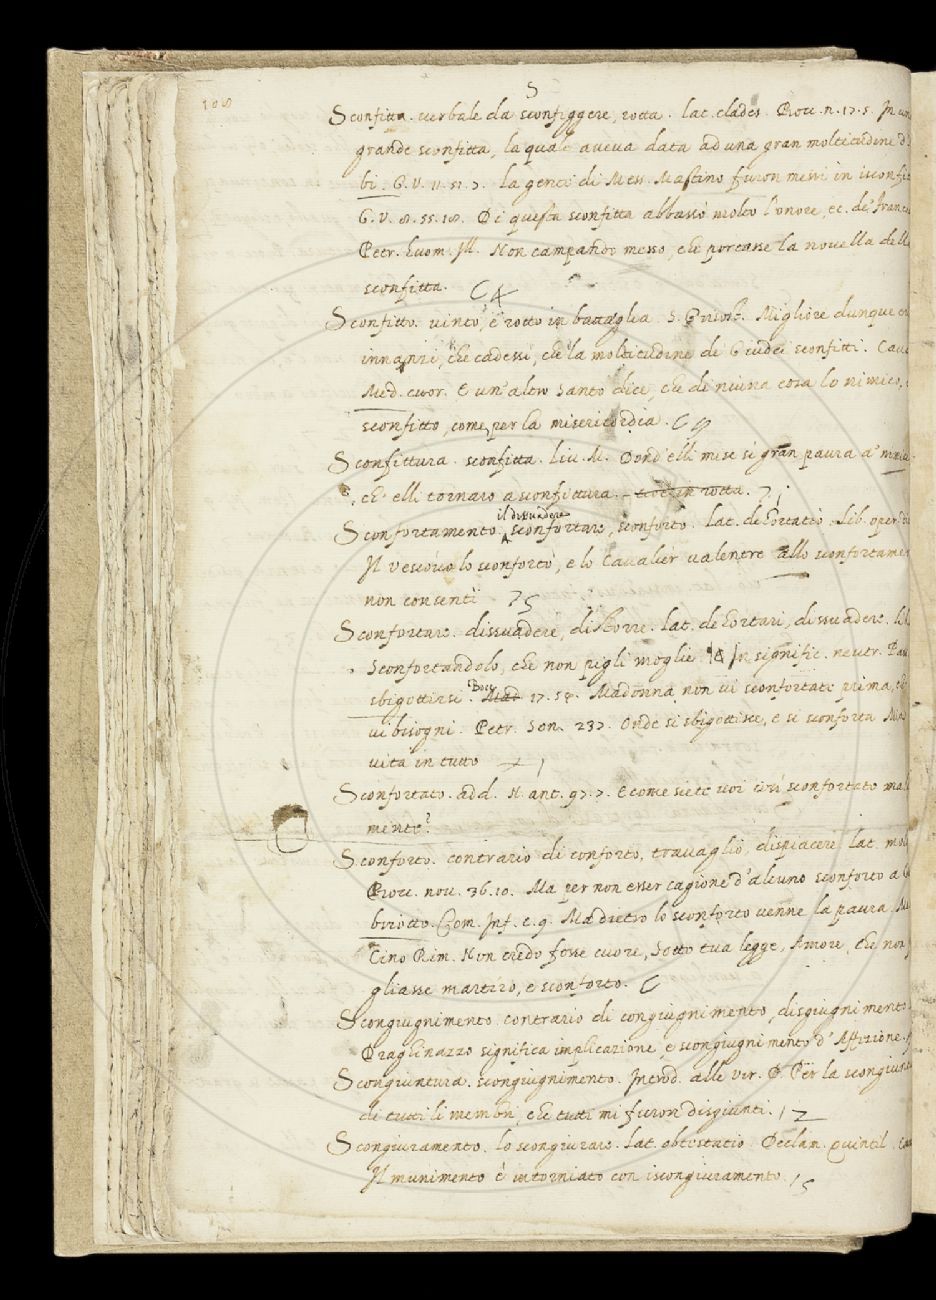 108
S
Sconfitta. verbale da sconfiggere, rotta. lat. clades. Nov. n. 17. 5. In una
grande sconfitta, la quale aveva data ad una gran moltitudine d'
bi. G. V. 11. 51. 3. la gente di Mess. Mastino furon messi in isconfit
G. V. 8. 55. 18. Di questa sconfitta abbassò molto l'onore, ec. de' Francesc
Petr. huom. Ill. Non campando messo, che portasse la novella della
sconfitta.
Sconfitto. vinto, e rotto in battaglia. S. Grisost. Migliore dunque er
innanzi, che cadessi, che la moltitudine de Giudei sconfitti. Cava
Med. cuor. E un' altro Santo dice, che di niuna cosa lo nimico,
sconfitto, come per la misericordia.
Sconfittura. sconfitta. Liv. M. Dond' elli mise si gran paura a'
ch' elli tornaro a sconfittura. cioè in rotta.
il dissuadere
Sconfortamento. sconfortare, sconforto. lat. dehortatio. Lib. oper. di
Il vescovo lo sconfortò, e lo Cavalier valentre allo sconfortamen
non consentì 75
Sconfortare. dissuadere, distorre. lat. dehortari, dissuadere. lib
Sconfortandolo, che non pigli moglie. In signific. neutr. Pass
sbigottirsi. Bocc. Mad 17. 58. Madonna non vi sconfortate prima, che
vi bisogni. Petr. Son. 237. Onde si sbigottisce, e si sconforta Mia
vita in tutto
Sconfortato. add. N. ant. 97. 7. E come siete voi così sconfortato mala
mente?
Sconforto. contrario di conforto, travaglio, dispiacere. lat. mole
Nov. nov. 36. 10. Ma per non esser cagione d'alcuno sconforto a Ga
briotto. Com. Inf. c. 9. Ma dietro lo sconforto venne la paura. M
Cino Rim. Non credo fosse cuore, Sotto tua legge, Amore, che non
gliasse martiro, e sconforto.
Scongiugnimento. contrario di congiugnimento, disgiugnimento.
significa implicazione e scongiugnimento d' Affezione.
Scongiuntura. scongiugnimento. Introd. alle vir. P. Per la scongiunt
di tutti li membri, che tutti mi furon disgiunti. 12
Scongiuramento. lo scongiurare. lat. obtestatio. Declam. Quintil.
Il munimento è intorniato con iscongiuramento. 15